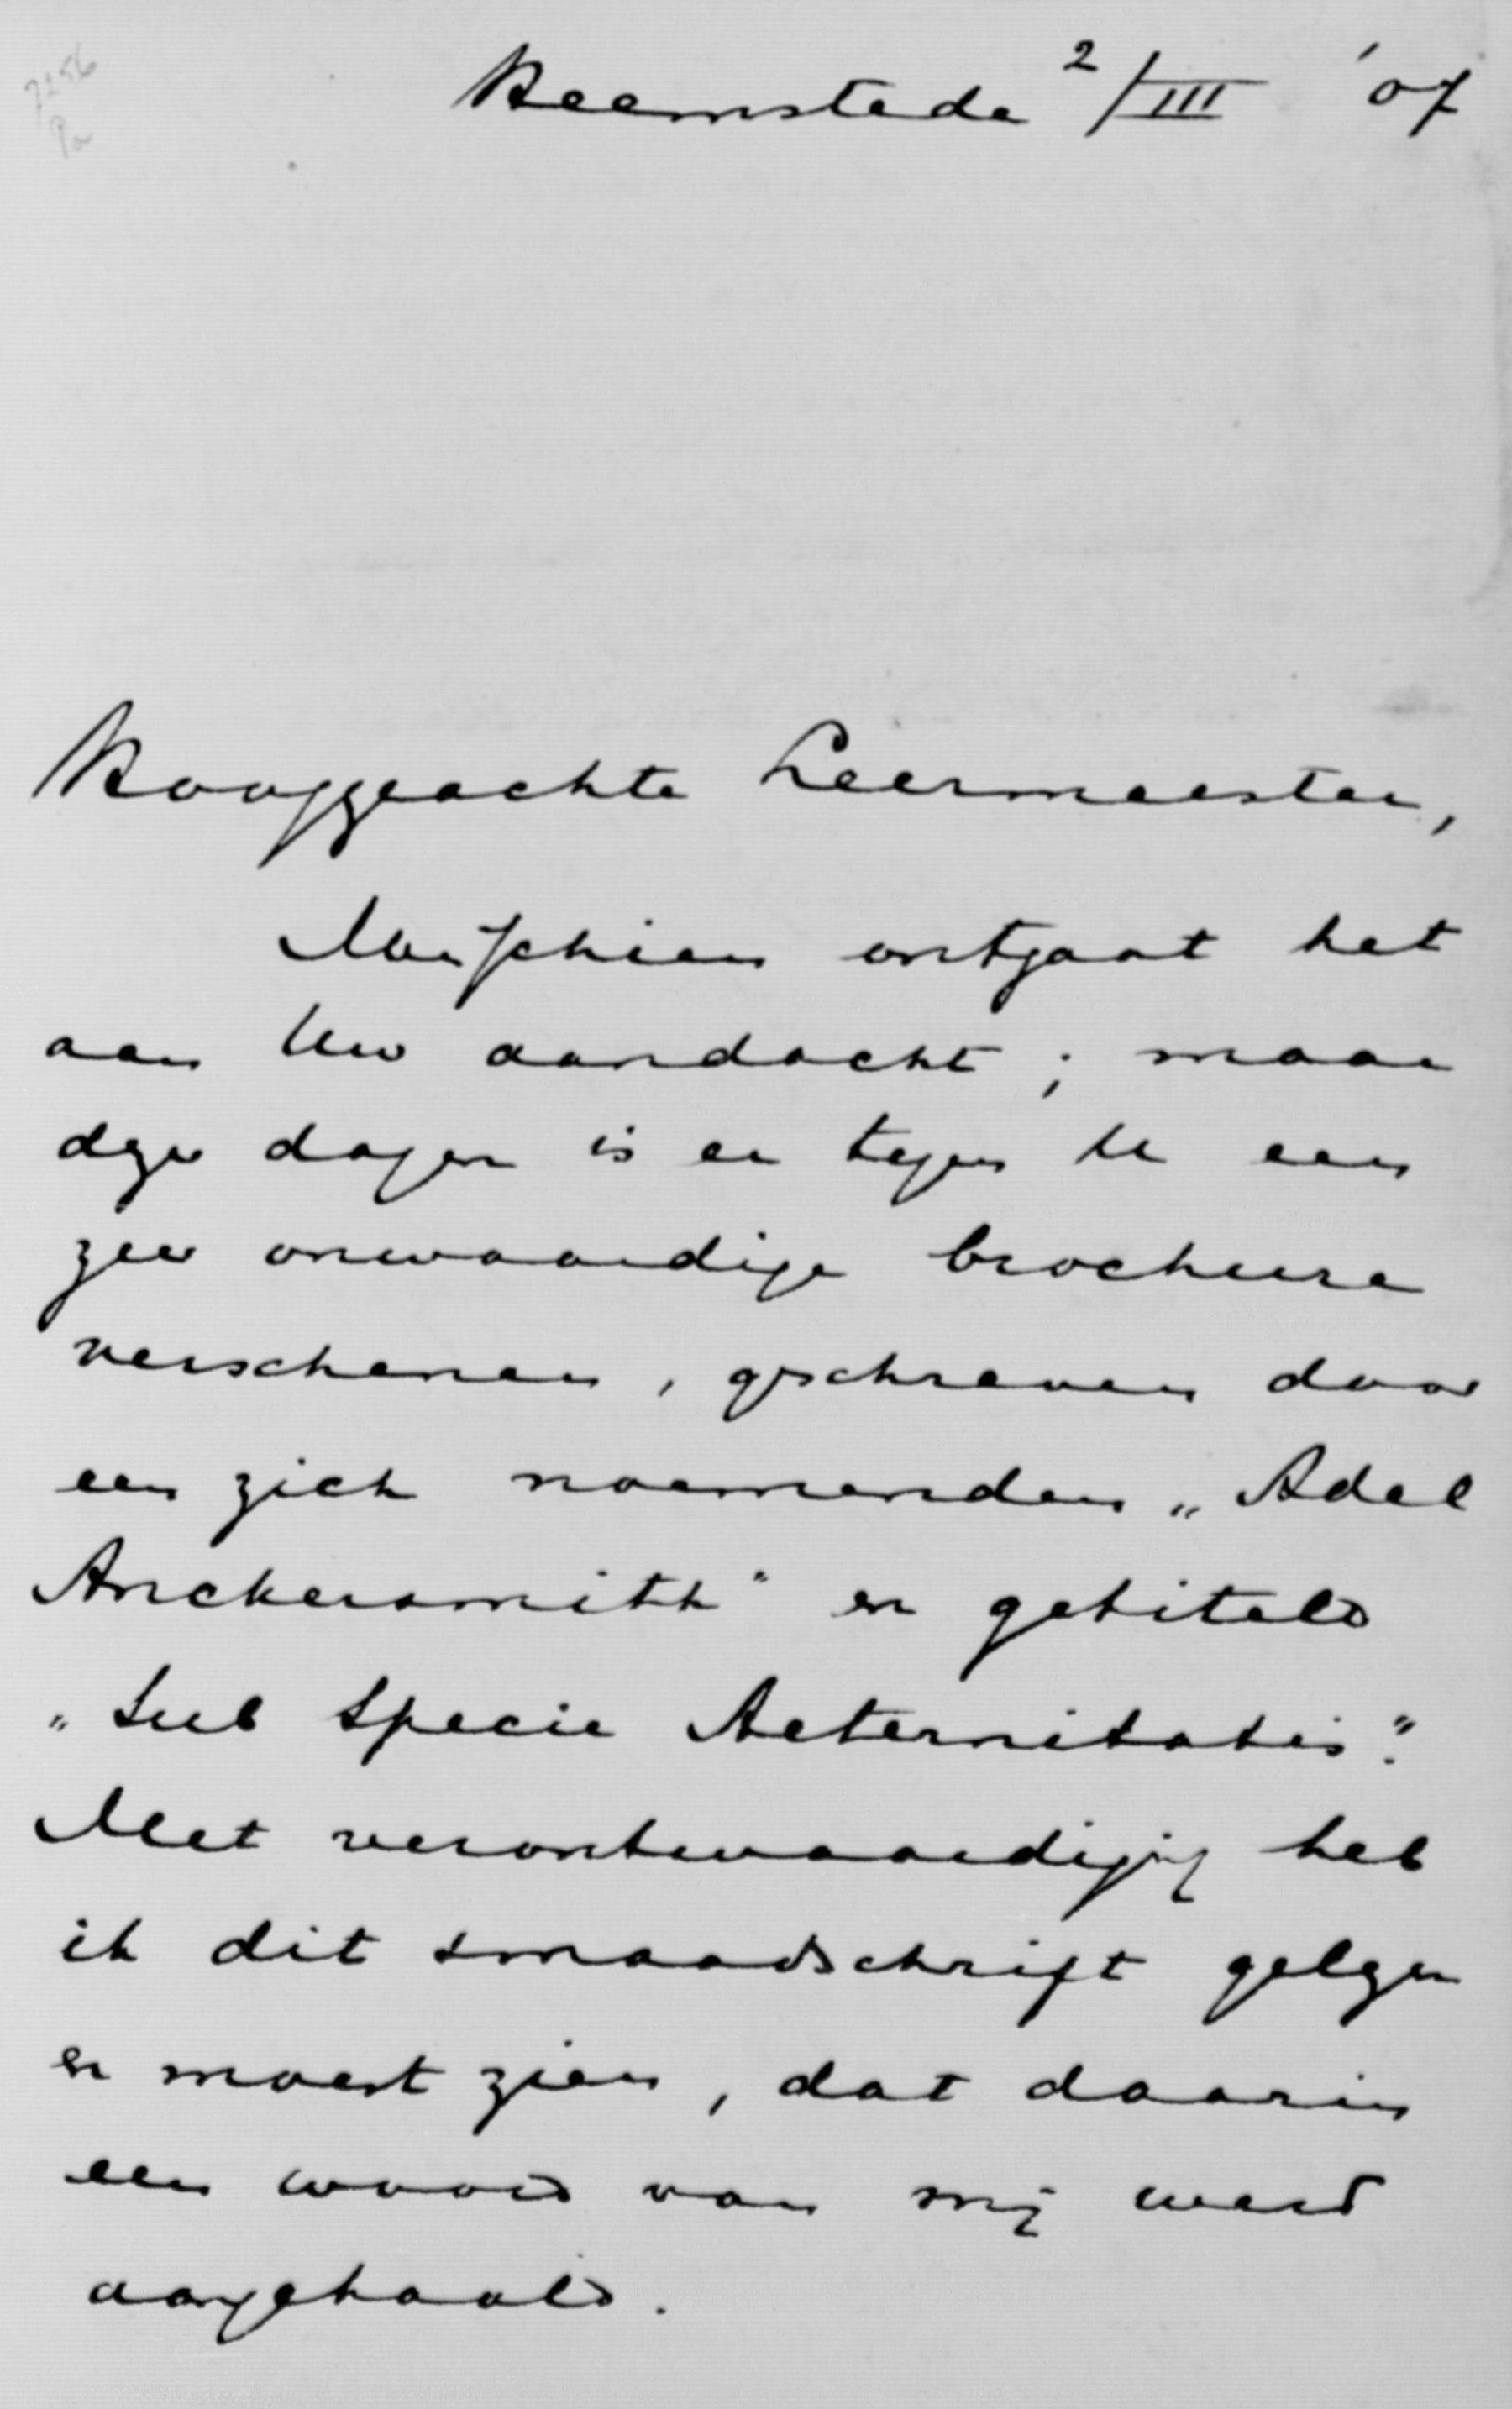 Heemstede 2/III '07
Hooggeachte Leermeester,
Misschien ontgaat het
aan Uw aandacht; maar
dezer dagen is er tegen U een
zeer onwaardige brochure
verschenen, geschreven door
een zich noemenden „Adel
Anckersmith" en getiteld
„Sub Specie Aeternitatis".
Met verontwaardiging heb
ik dit smaadschrift gelezen
en moest zien, dat daarin
een woord van mij werd
aangehaald.